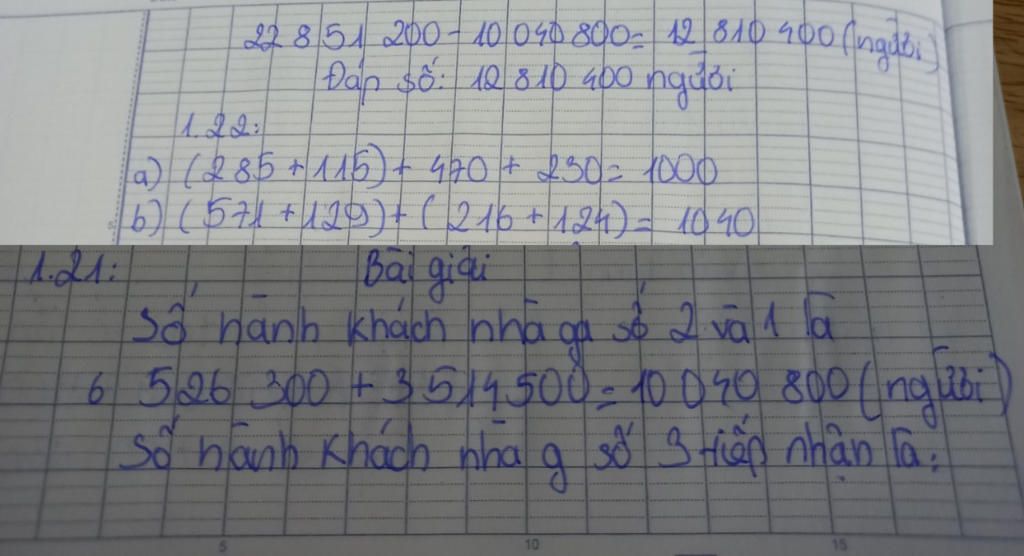 22 851 200 - 10 040 800 = 12 810 400 (người)
Đáp số: 12 810 400 người
1.22:
a) (285 + 115) + 470 + 230 = 1000
b) (571 + 129) + (216 + 124) = 1040
1.21: Bài giải
Số hành khách nhà ga số 2 và 1 là
6 526 300 + 3 514 500 = 10 040 800 (người)
Số hành khách nhà g số 3 tiếp nhận là:
5 10 15